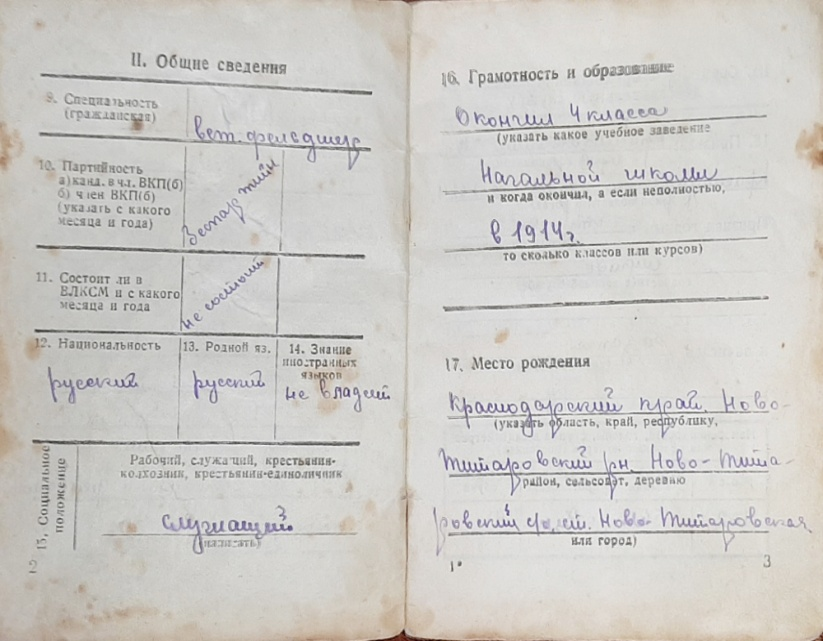 II. Общие сведения
9. Специальность
(гражданская)
вет. фельдшер
10. Партийность
а) канд. в чл. ВКП(б)
б) член ВКП(б)
(указать с какого
месяца и года)
Беспартийн
11. Состоит ли в
ВЛКСМ и с какого
месяца и года
не состоит
12. Национальность
русский
13. Родной яз.
русский
14. Знание
иностранных
языков
не владеит
15. Социальное
положение
Рабочий, служащий, крестьянин-
колхозник, крестьянин-единоличник
служащий
(написать)
2
16. Грамотность и образование
Окончил 4 класса
(указать какое учебное заведение
Начальной школы
и когда окончил, а если неполностью,
в 1914 г.
то сколько классов или курсов)
17. Место рождения
Краснодарский край, Ново-
(указать область, край, республику,
Титаровский рн. Ново-Тита-
район, сельсовет, деревню
ровский с/с, ст. Ново-Титаровская
или город)
1*
3